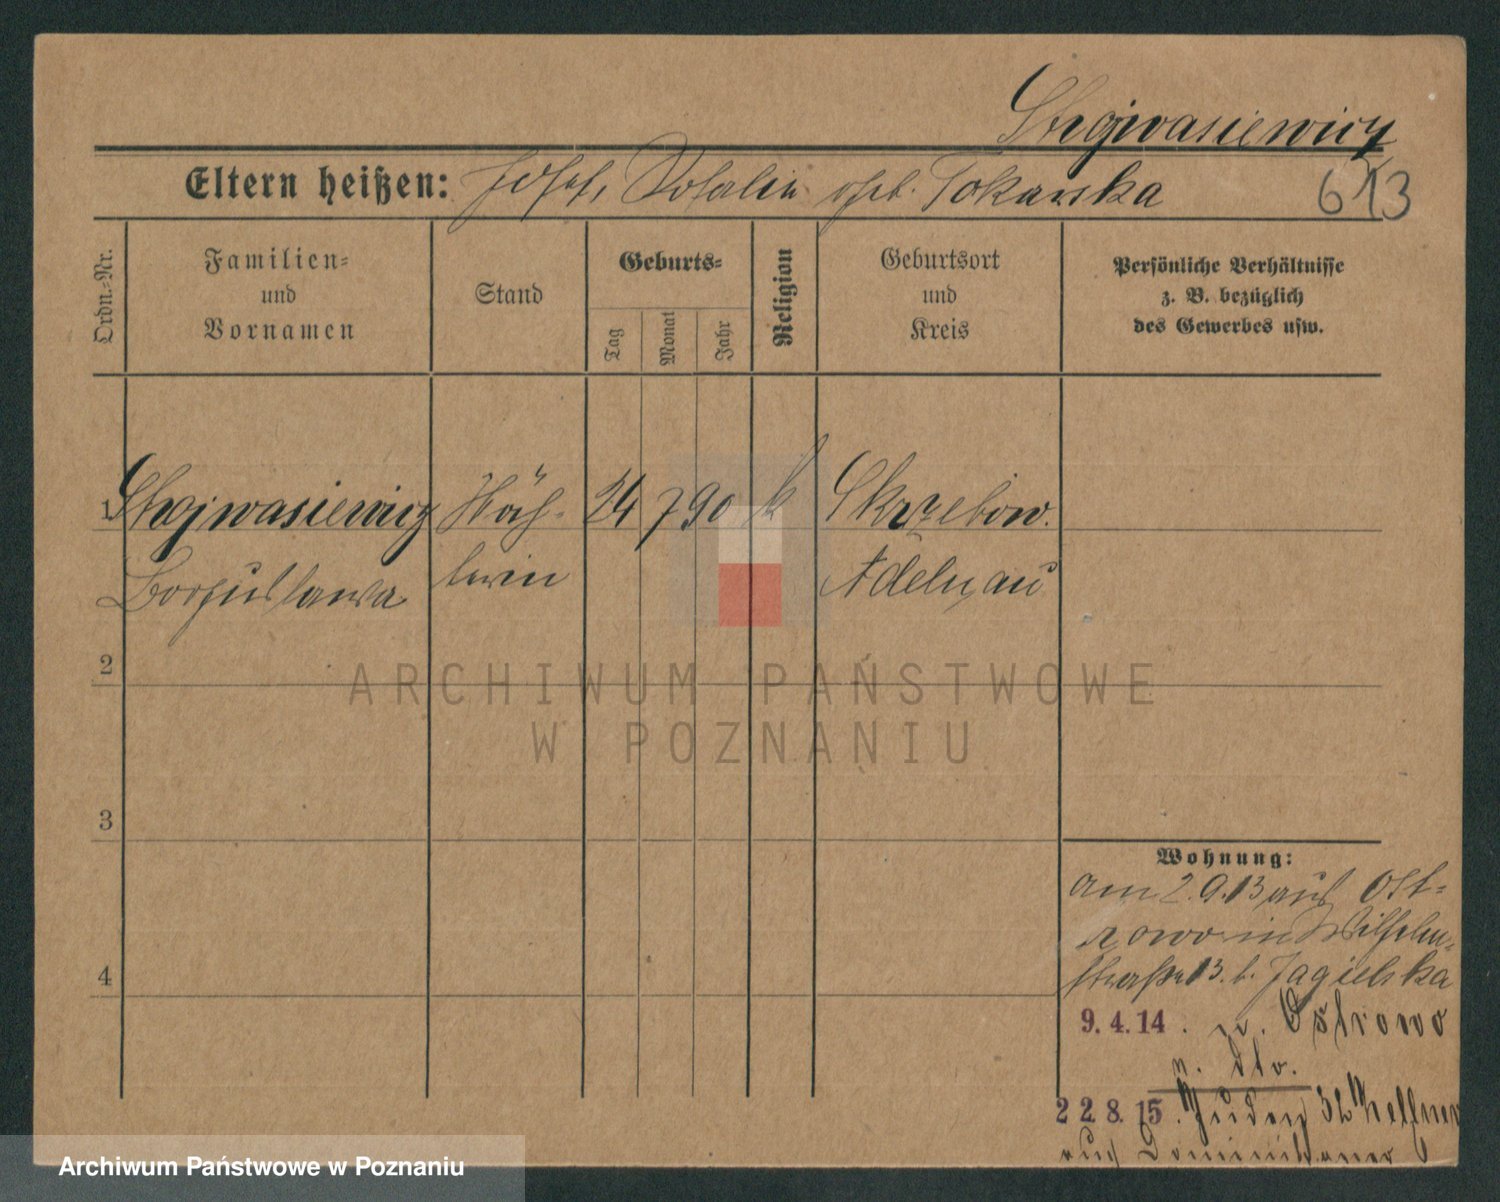 Strojwasiewicz
Eltern heißen: Josef, Rosalia geb. Tokarska
613
Ordn.-Nr.
Familien-
und
Vornamen
Stand
Geburts-
Tag
Monat
Jahr
Religion
Geburtsort
und
Kreis
Persönliche Verhältnisse
z. B. bezüglich
des Gewerbes usw.
1 Strojwasiewicz Näh- 24 7 90 k Skrzebow.
Boguslawa terin Adelnau
2
3
4
Wohnung:
am 2.9.13 aus Ost-
rowo in Wilhelm-
straße 13. b. Jagielska
9.4.14. n. Ostrowo
v. dto.
22 8. 15. Juden 32
auf Dominikaner
ARCHIWUM PAŃSTWOWE
W POZNANIU
Archiwum Państwowe w Poznaniu